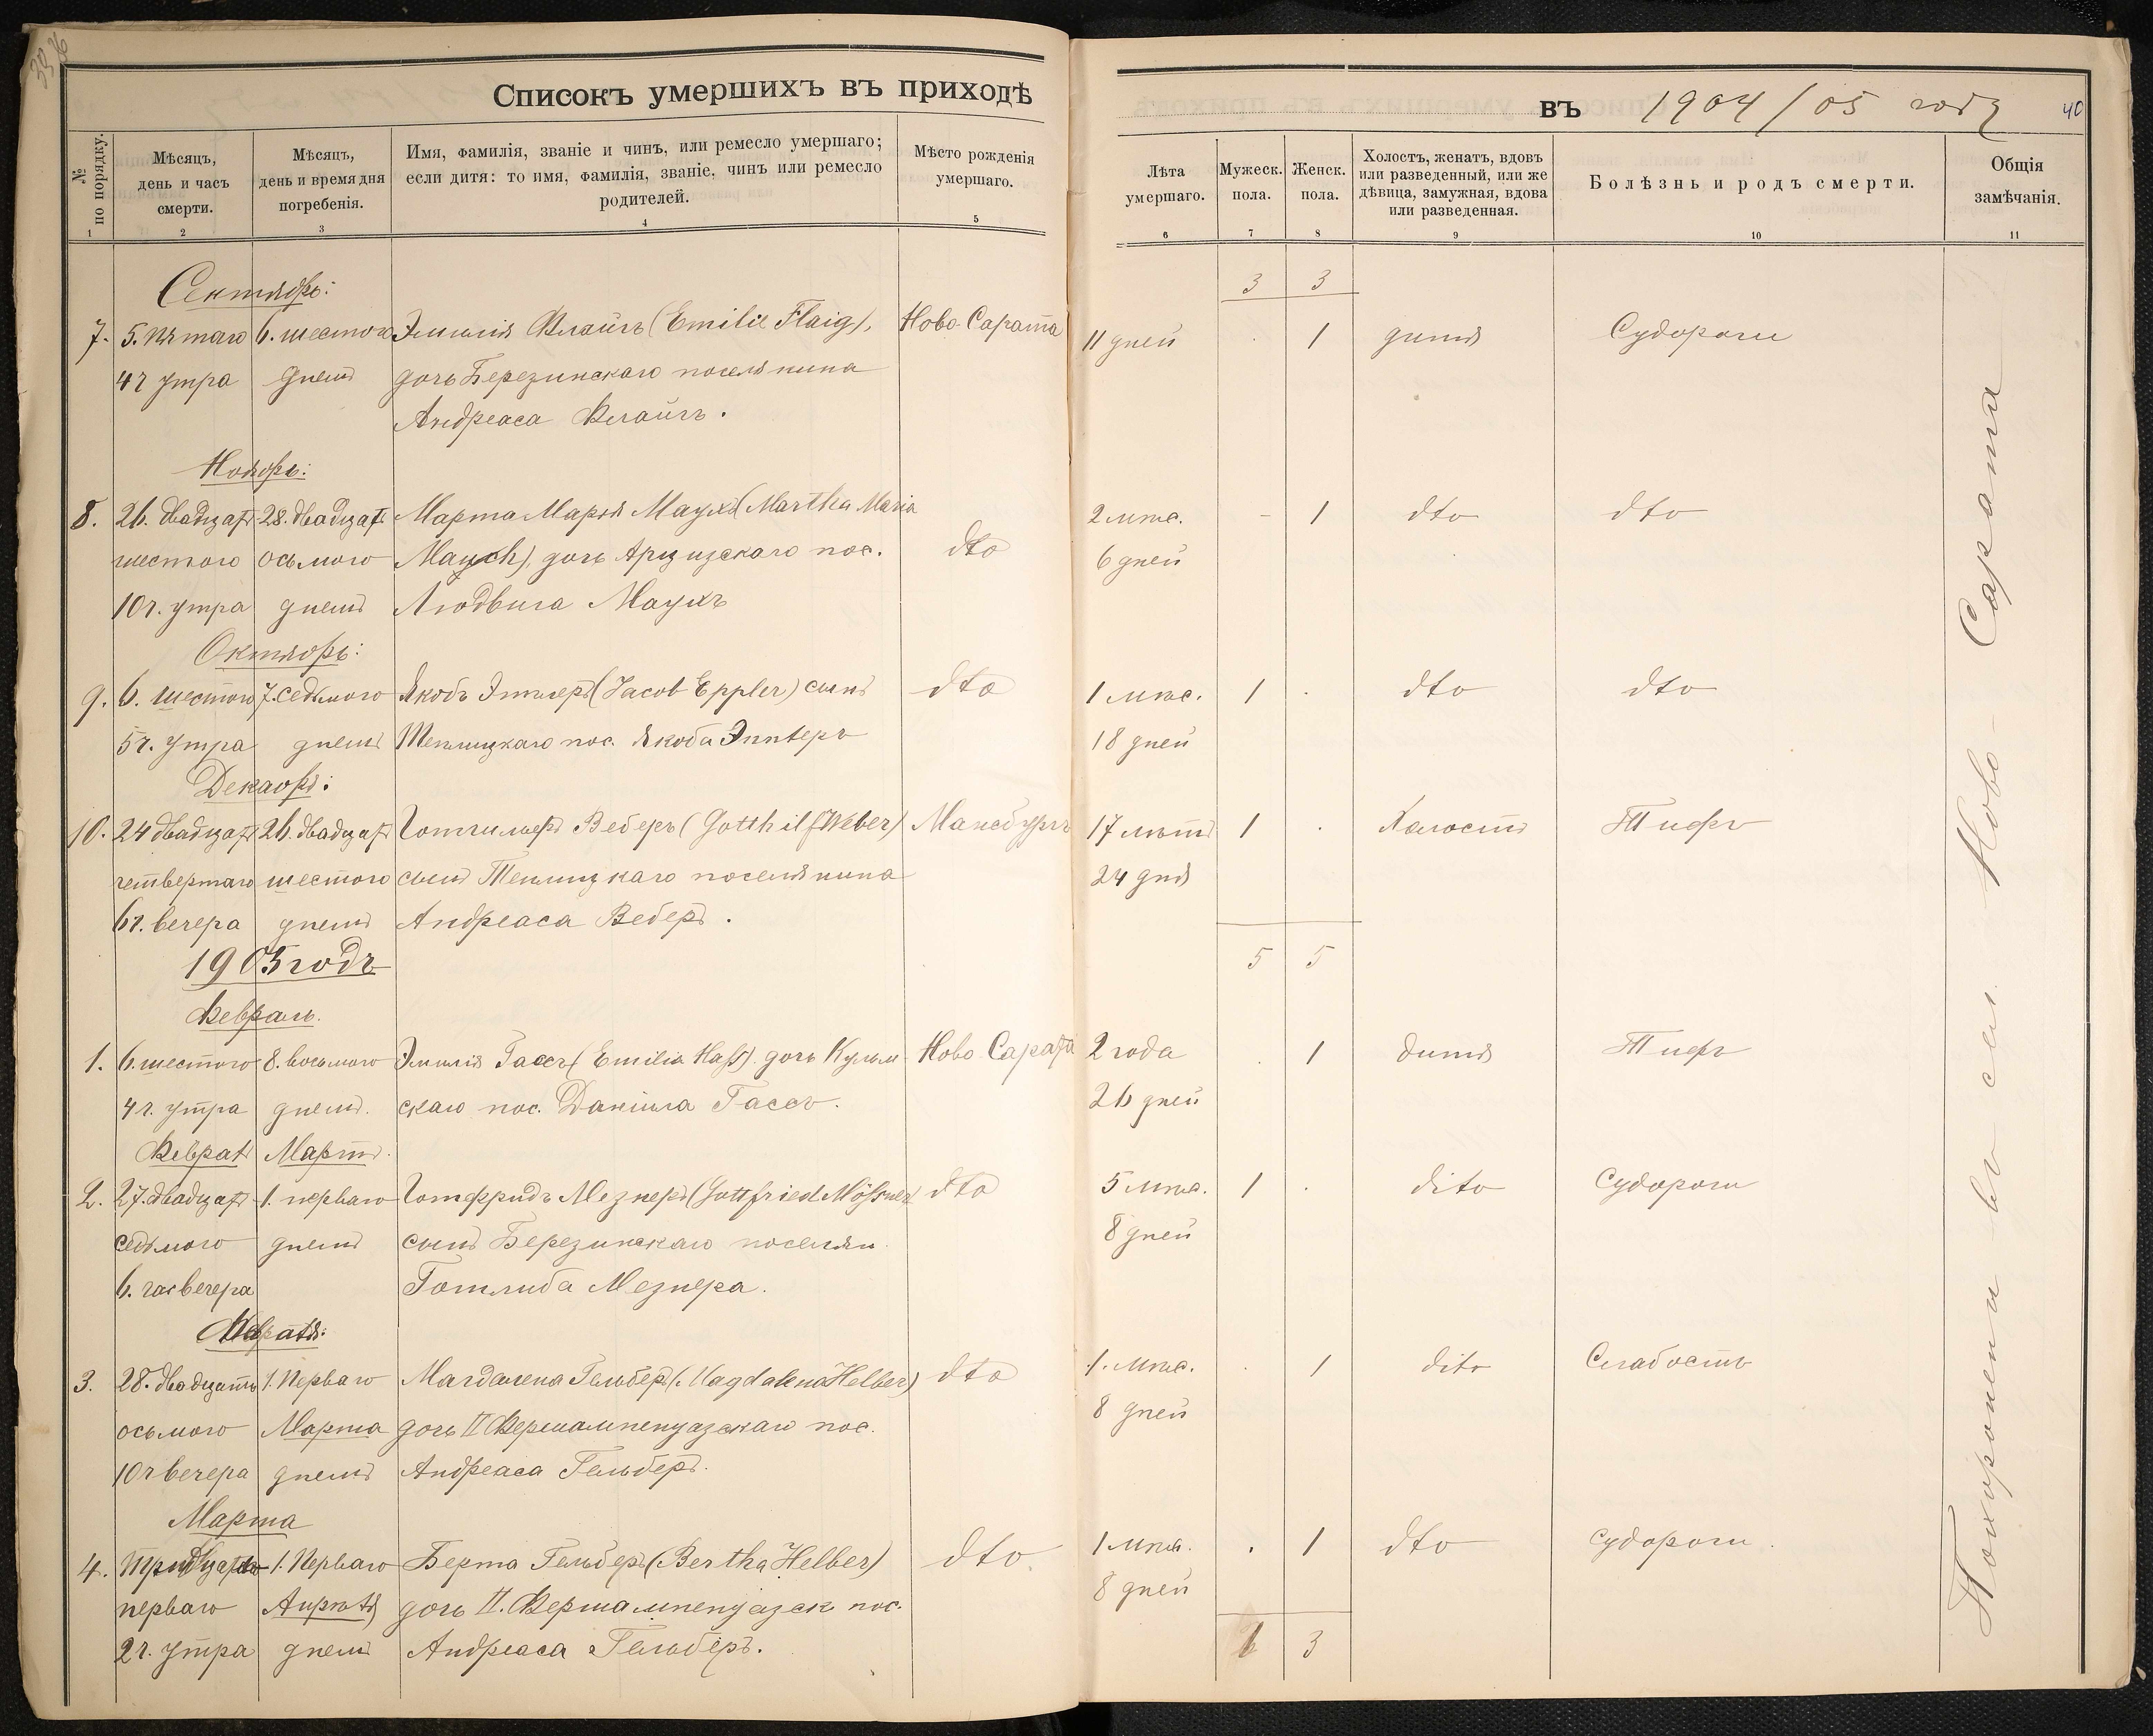 Списокъ умершихъ въ приходѣ
въ 1904/05 году 40
№ по порядку.
Мѣсяцъ, день и часъ смерти.
Мѣсяцъ, день и время дня погребенія.
Имя, фамилія, званіе и чинъ, или ремесло умершаго; если дитя: то имя, фамилія, званіе, чинъ или ремесло родителей.
Мѣсто рожденія умершаго.
Лѣта умершаго.
Мужеск. пола.
Женск. пола.
Холостъ, женатъ, вдовъ или разведенный, или же дѣвица, замужная, вдова или разведенная.
Болѣзнь и родъ смерти.
Общія замѣчанія.
1 2 3 4 5 6 7 8 9 10 11
3 3
Сентябрь:
7. 5. пятаго 6. шестого Эмилія Флайгъ (Emilie Flaig), Ново-Сарата 11 дней . 1 дитя Судороги
4 ч утра днемъ дочь Березинскаго поселянина
Андреаса Флайгъ.
Ноябрь:
8. 26. двадцат 28. двадцат Марта Марія Маухъ (Martha Maria 2 мѣс. - 1 dto dto
шестого осьмого Mauch), дочь Арцизскаго пос. dto 6 дней
10 ч. утра днемъ Людвига Маухъ
Октябрь:
9. 6. шестого 7. седьмого Якобъ Эпплеръ (Jacob Eppler) сынъ dto 1 мѣс. 1 . dto dto
5 ч. утра днемъ Теплицкаго пос. Якоба Эпплеръ 18 дней
Декабрь:
10. 24 двадцат 26. двадцат Готгильфъ Веберъ (Gotthilf Weber) Мансбургъ 17 лѣтъ 1 . Холостъ Тифъ
четвертаго шестого сынъ Теплицкаго поселянина 24 дня
6 ч. вечера днемъ Андреаса Веберъ.
1905 годъ 5 5
Февраль.
1. 6. шестого 8. восьмого Эмилія Гассъ (Emilia Haß) дочь Кульм Ново Сарата 2 года . 1 дитя Тифъ
4 ч. утра днемъ. скаго пос. Даніила Гассъ. 26 дней
Феврал Мартъ.
2. 27. двадцат 1. перваго Готфридъ Мезнеръ (Gottfried Mößner dto 5 мѣс. 1 . dito Судороги
седьмого днемъ сынъ Березинскаго поселян. 8 дней
6. час вечера Готлиба Мезнера.
3. 28. двадцать 1. Перваго Магдалена Гельберъ (Magdalena Helber) dto 1. мѣс. . 1 dito Слабость
осьмого Марта дочь II Фершампенуазскаго пос. 8 дней
10 ч вечера днемъ Андреаса Гельберъ.
Марта
4. тридцать 1. Перваго Берта Гельберъ (Bertha Helber) dto. 1 мѣс. . 1 dto судороги.
перваго Апрѣля дочь II. Фершампенуазск пос. 8 дней
2 ч. утра днемъ Андреаса Гельберъ. 1 3
Похоронени въ сел. Ново-Сарата